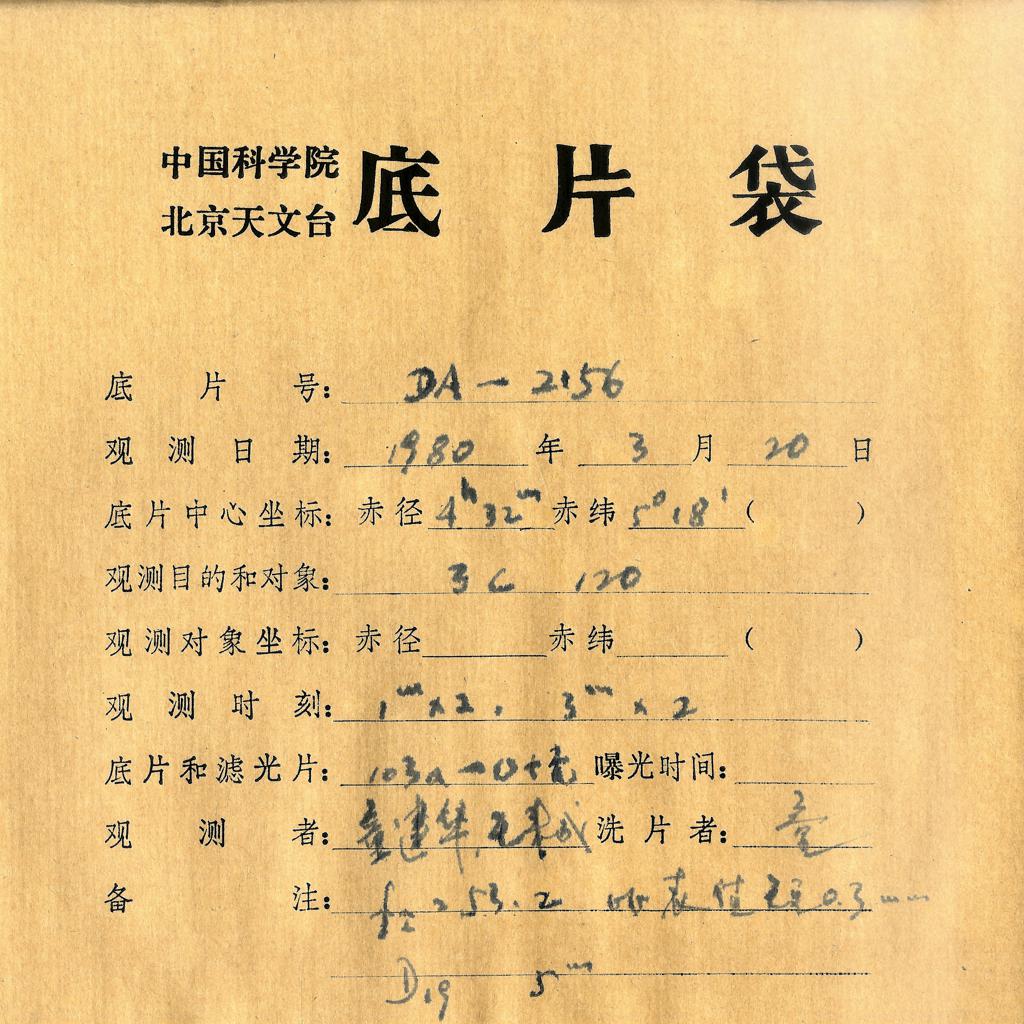 中国科学院
北京天文台
底片袋
底片号: DA-2156
观测日期: 1980年3月20日
底片中心坐标: 赤径 4h 32m 赤纬 5° 18' ( )
观测目的和对象: 3C 120
观测对象坐标: 赤径 赤纬 ( )
观测时刻: 1m×2, 3m×2
底片和滤光片: 103a-O+ 曝光时间:
观测者: 童建华, 洗片者: 童
备注: = 53.2 比表值 0.3mm
D19 5m